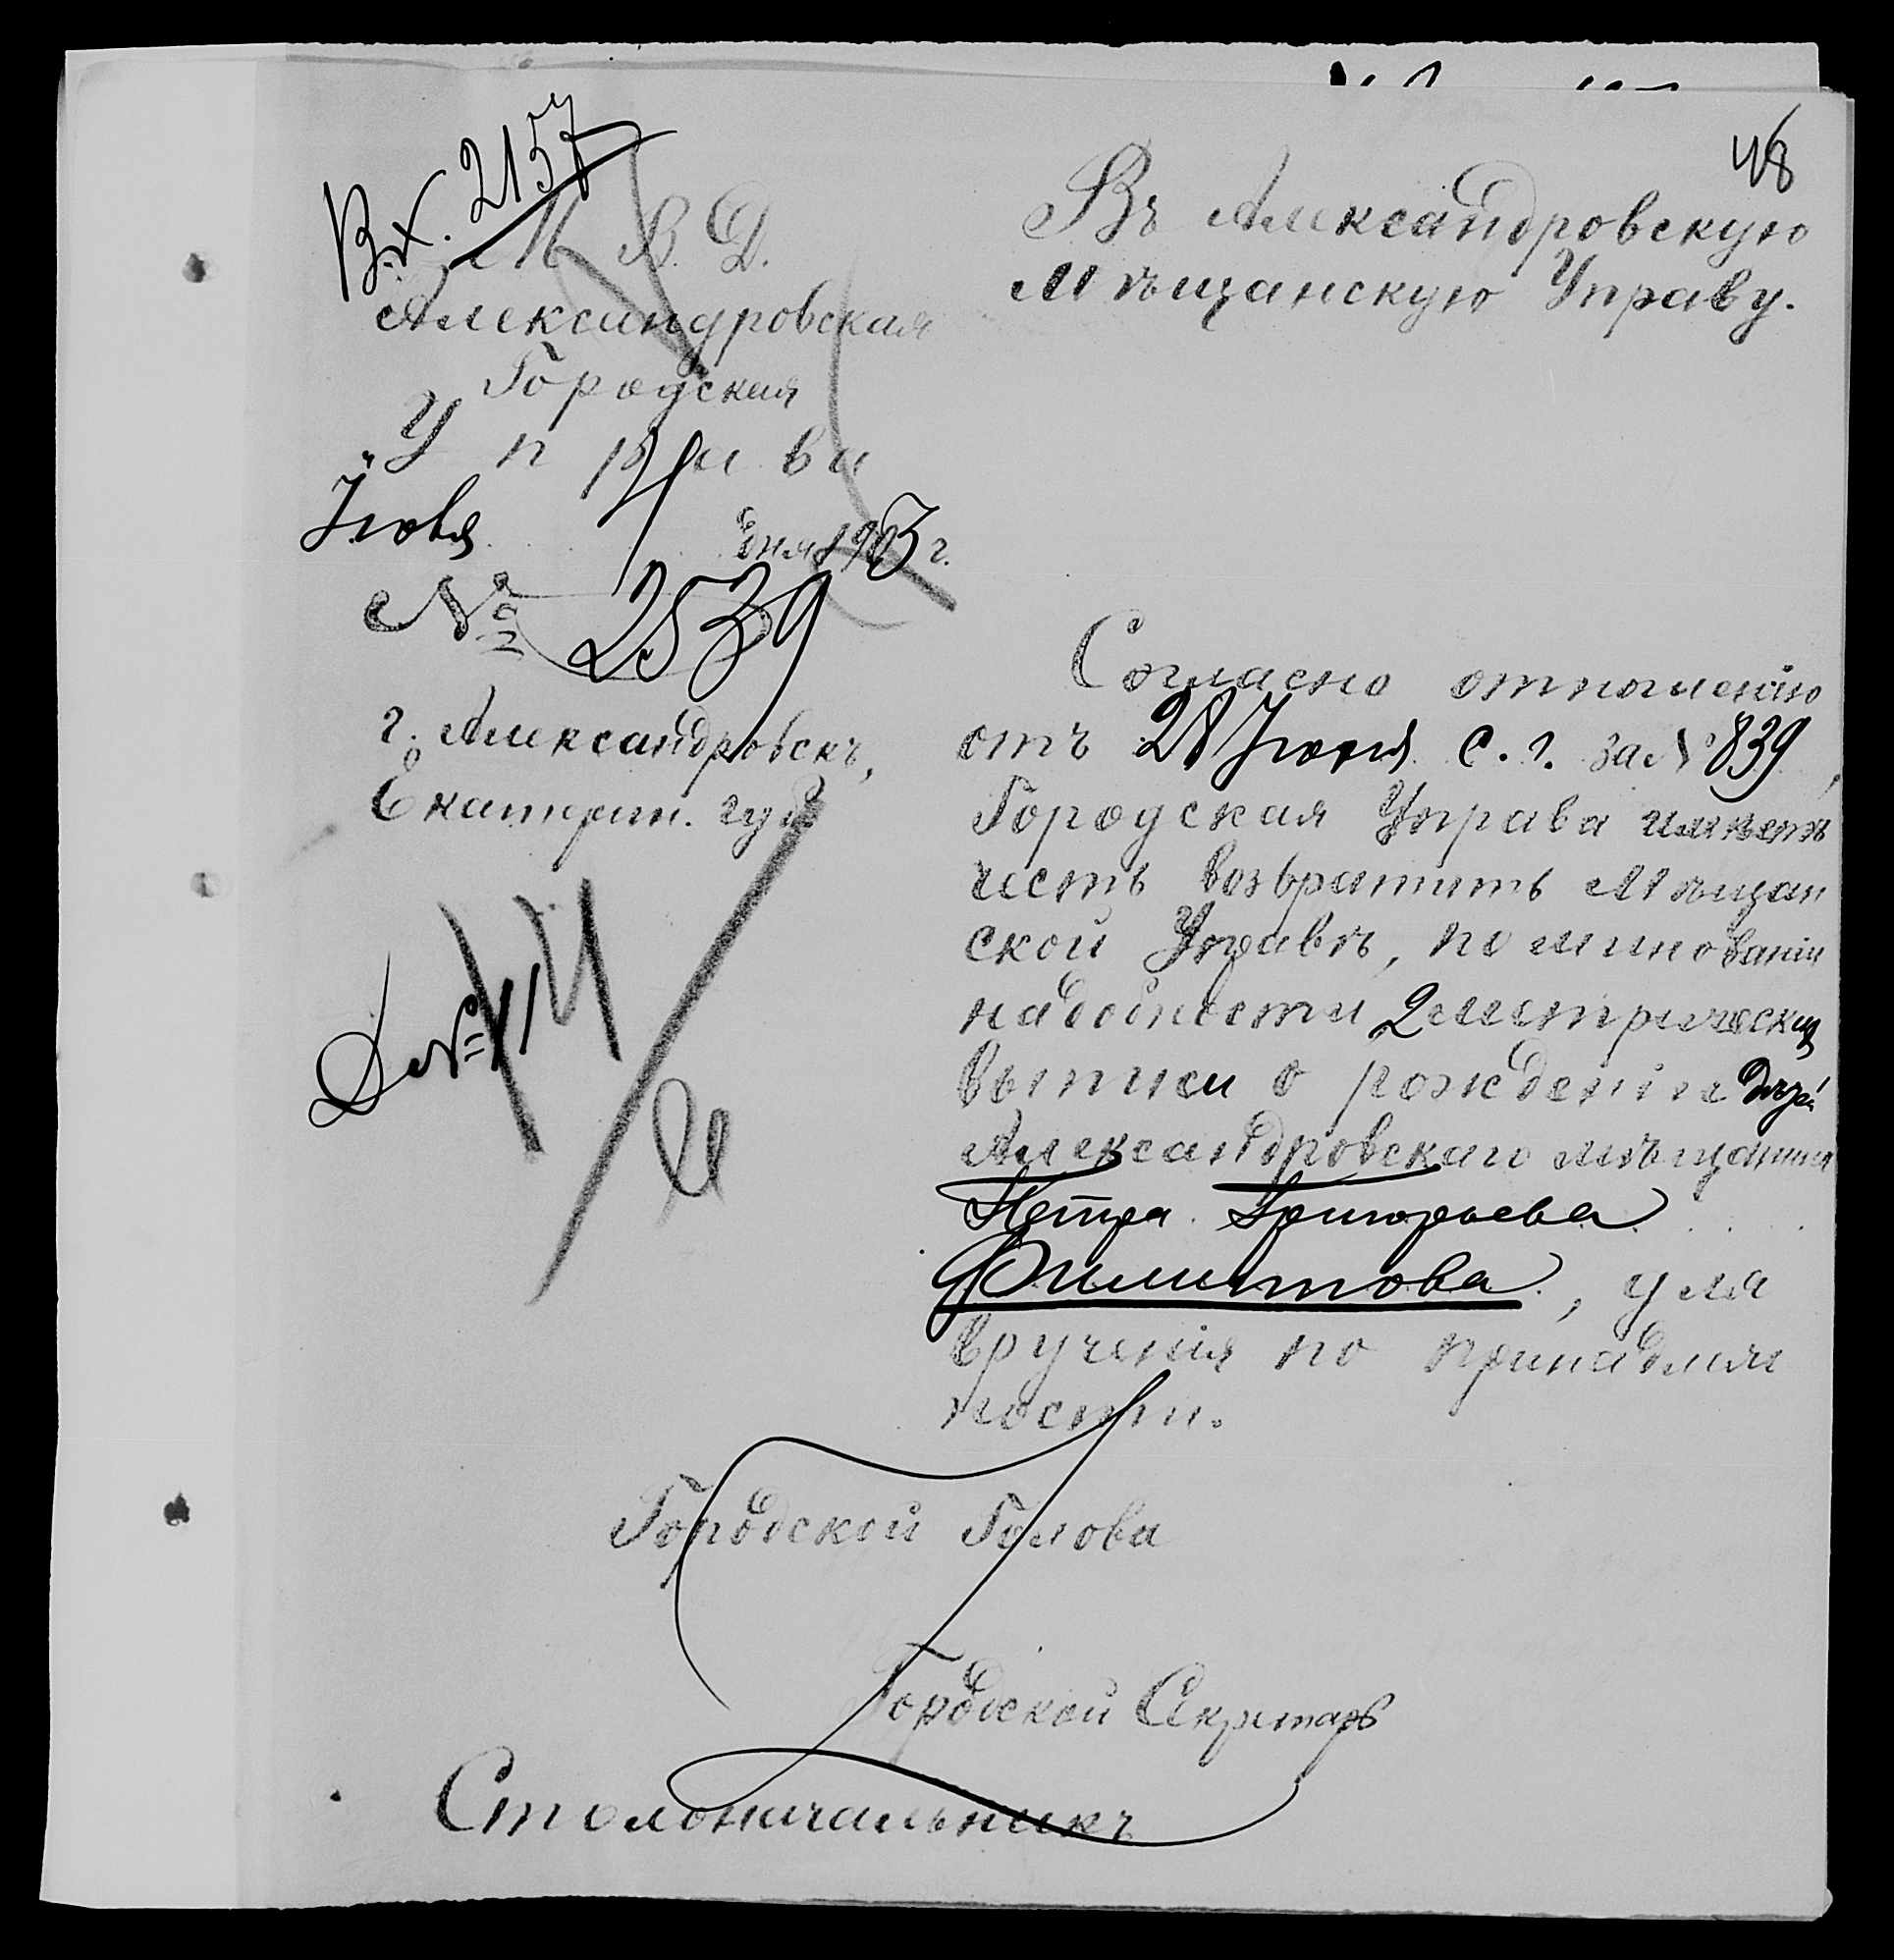 48
Вх. 2157
М. В. Д.
Александровская
Городская
Управа
Іюля 4 дня 1903 г.
№ 2539
г. Александровскъ,
Екатерин. губ.
Въ Александровскую
Мѣщанскую Управу.
Согласно отношенію
отъ 28 Іюня с. г. за № 839,
Городская Управа имѣетъ
честь возвратить Мѣщан
ской Управѣ, по минованіи
надобности 2 метрическия
выписи о рожденіи
Александровскаго мѣщанина
Петра Григорьева
Филиппова, для
врученія по принадлеж
ности.
Городской Голова
Городской Секретарь
Столоначальникъ